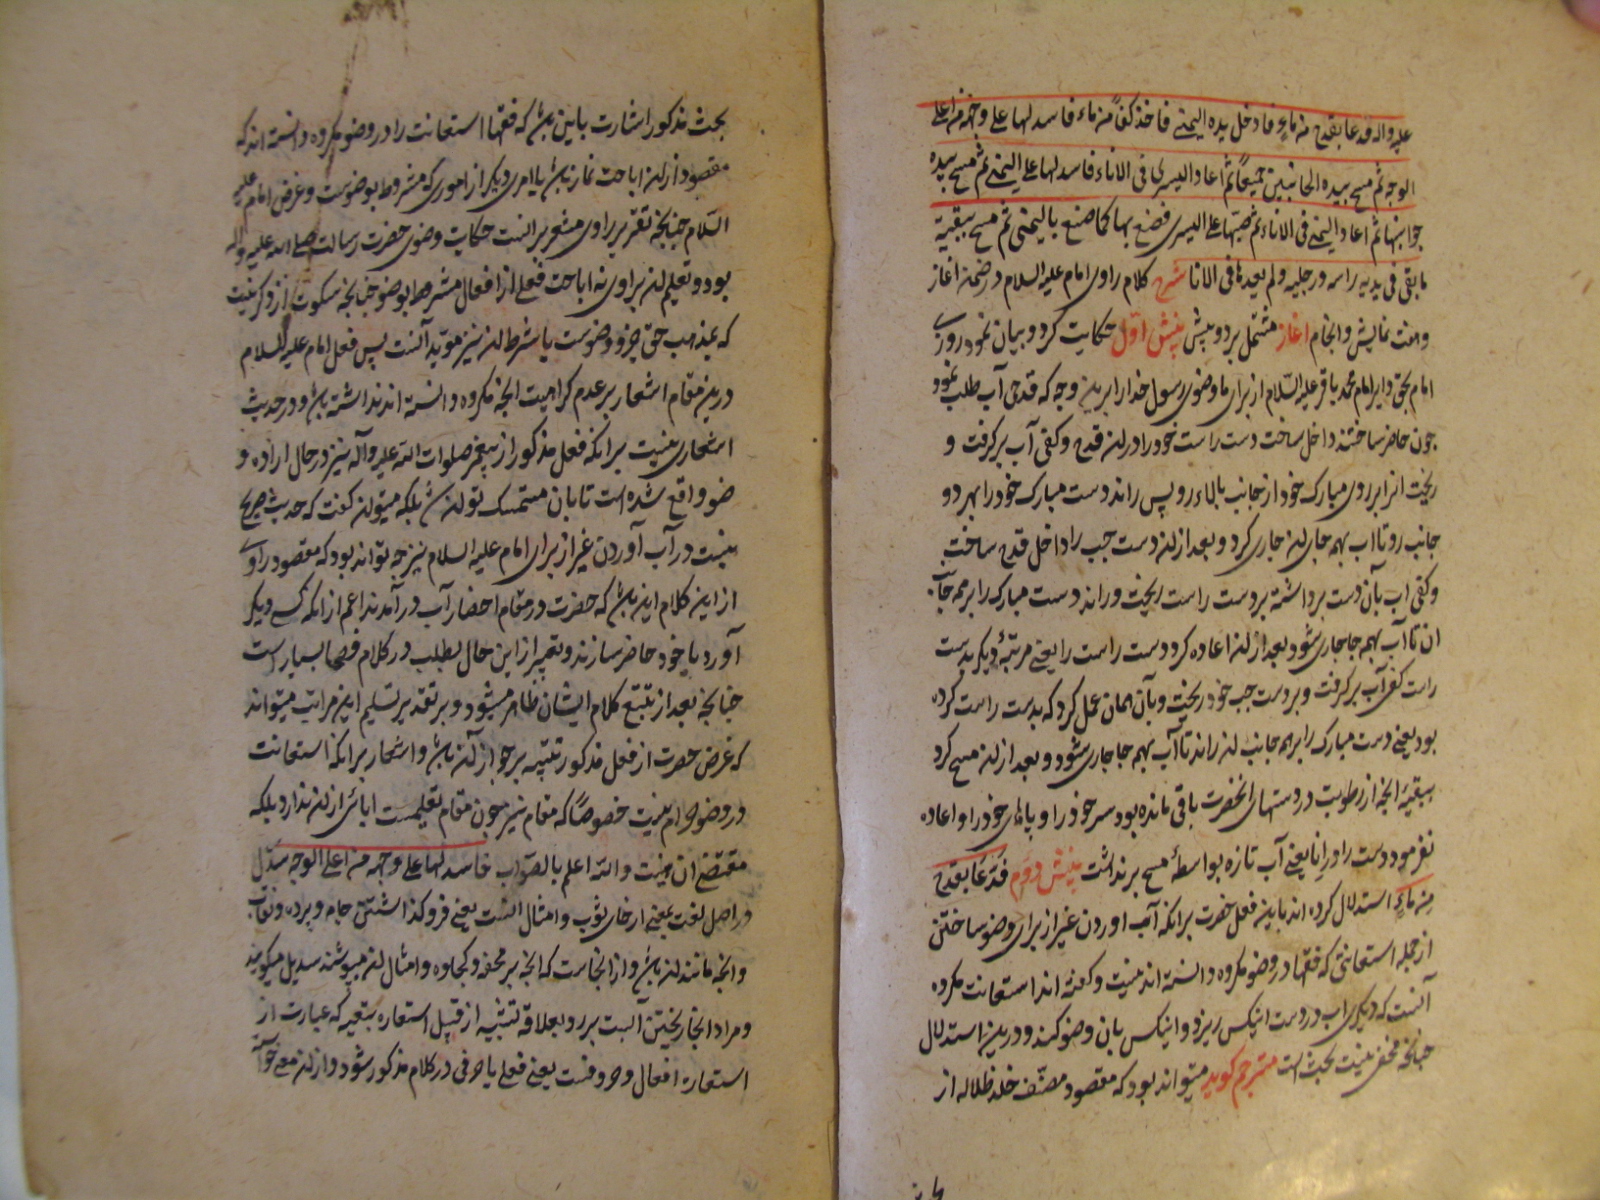 علیه واله فدعا بقدح من ماء فادخل یده الیمنی فاخذ کفا من ماء فاسدلها علی وجهه من اعلی
الوجه ثم مسح بیده الجانبین جمیعا ثم اعاد الیسری فی الاناء فاسدلها علی الیمنی ثم مسح بیده
جوانبها ثم اعاد الیمنی فی الاناء ثم صبها علی الیسری فصنع بها کما صنع بالیمنی ثم مسح ببقیة
ما بقی فی یدیه راسه ورجلیه ولم یعدها فی الانا شرح کلام راوی امام علیه السلام در ضمن اغاز
و نمایش و انجام اغاز مشتمل بر دو بینش بینش اول حکایت کرد و بیان نمود روزی
امام بحق امام محمد باقر علیه السلام از برای ما وضوی رسول خدا را برین وجه که قدحی آب طلب نمود
چون حاضر ساختند داخل ساخت دست راست خود را در ان قدح و کفی آب برگرفت و
ریخت انرا بر روی مبارک خود از جانب بالاء رو پس راند دست مبارک خود را بهر دو
جانب رو تا اب بهمه جای ان جاری کرد و بعد از ان دست چپ را داخل قدح ساخت
و کفی اب بآن دست برداشته بر دست راست ریخت و راند دست مبارک را بر همه جانب
ان تا آب بهمه جا جاری شود بعد از ان اعاده کرد دست راست را یعنی مرتبهٔ دیگر بدست
راست کفی آب برگرفت و بر دست چپ خود ریخت و بآن همان عمل کرد که بدست راست کرده
بود یعنی دست مبارک را بر همه جانب ان راند تا آب بهمه جا جاری شود و بعد از ان مسح کرد
ببقیهٔ انچه از رطوبت در دستهای انحضرت باقی مانده بود سر خود را و پاهای خود را و اعاده
نفرمود دست را در انا یعنی آب تازه بواسطهٔ مسح برنداشت بینش دوم فدعا بقدح
من ماء استدلال کرده اند باین فعل حضرت بر انکه آب اوردن غیر از برای وضو ساختن
از جمله استعانتی که فقها در وضو مکروه دانسته اند نیست و گفته اند استعانت مکروه
آنست که دیگری اب در دست اینکس ریزد و اینکس بان وضو کند و درین استدلال
چنانچه مخفی نیست بحث است مترجم گوید میتواند بود که مقصود مصنف خلد ظلاله از
بحث مذکور اشارت باین باشد که فقها استعانت را در وضو مکروه دانسته اند که
مقصود از ان اباحت نماز باشد یا امری دیگر از اموری که مشروط بوضوست و غرض امام علیه
السلام چنانچه تقریر راوی مشعر بر انست حکایت وضوی حضرت رسالت صلی الله علیه واله
بود و تعلیم ان براوی نه اباحت فعلی از افعال مشروط بوضو چنانچه سکوت از ذکر نیت
که بمذهب حق جزو وضوست یا شرط ان نیز موید آنست پس فعل امام علیه السلام
درین مقام اشعار بر عدم کراهیت انچه مکروه دانسته اند نداشته باشد و در حدیث
اشعاری نیست بر انکه فعل مذکور از پیغمبر صلوات الله علیه وآله نیز در حال اراده و
ضو واقع شده است تا بان متمسک توان شد بلکه میتوان گفت که حدیث صریح
نیست در آب آوردن غیر از برای امام علیه السلام نیز چه تواند بود که مقصود راوی
از این کلام این باشد که حضرت در مقام احضار آب در آمدند اعم از انکه کسی دیگر
آورد یا خود حاضر سازند و تعبیر از این حال بطلب در کلام فصحا بسیار است
چنانچه بعد از تتبع کلام ایشان ظاهر میشود و بر تقدیر تسلیم این مراتب میتواند
که غرض حضرت از فعل مذکور تنبیه بر جواز آن باشد و اشعار بر انکه استعانت
در وضو حرام نیست خصوصا که مقام نیز چون مقام تعلیمست ابائی از ان ندارد بلکه
مقتضی ان نیست والله اعلم بالصواب فاسدلها علی وجهه من اعلی الوجه سدل
در اصل لغت بمعنی ارخای ثوب و امثال انست یعنی فرو گذاشتن جامه و پرده و نقاب
و انچه مانند ان باشد و از انجاست که انچه بر محفه و کجاوه و امثال ان میپوشند سدیل میگویند
و مراد انجا ریختن آبست بر رو بعلاقه تشبیه از قبیل استعاره تبعیه که عبارت از
استعاره افعال و حروفست یعنی فعلی یا حرفی در کلام مذکور شود و از ان معنی خواهند